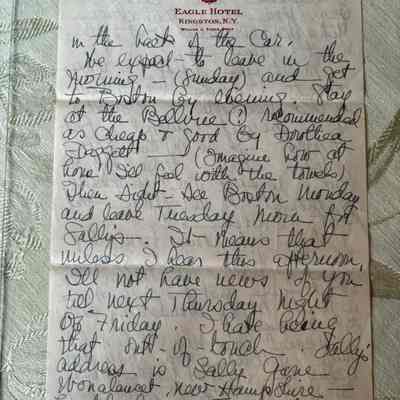 EAGLE HOTEL
KINGSTON, N.Y.
in the back of the Car.
We expect to leave in the
morning - (Sunday) and get
to Boston by evening. Stay
at the Bellvue (?) recommended
as cheap & good by Dorothea
Daggett — (Imagine how at
home I'll feel with the towels)
Then Sight-see Boston Monday
and leave Tuesday morn for
Sally's -. It means that
unless I hear this afternoon,
I'll not have news of you
till next Thursday night
or Friday. I hate being
that out-of-touch. Sally's
address is Sally Jane
Wonalancet, New Hampshire -